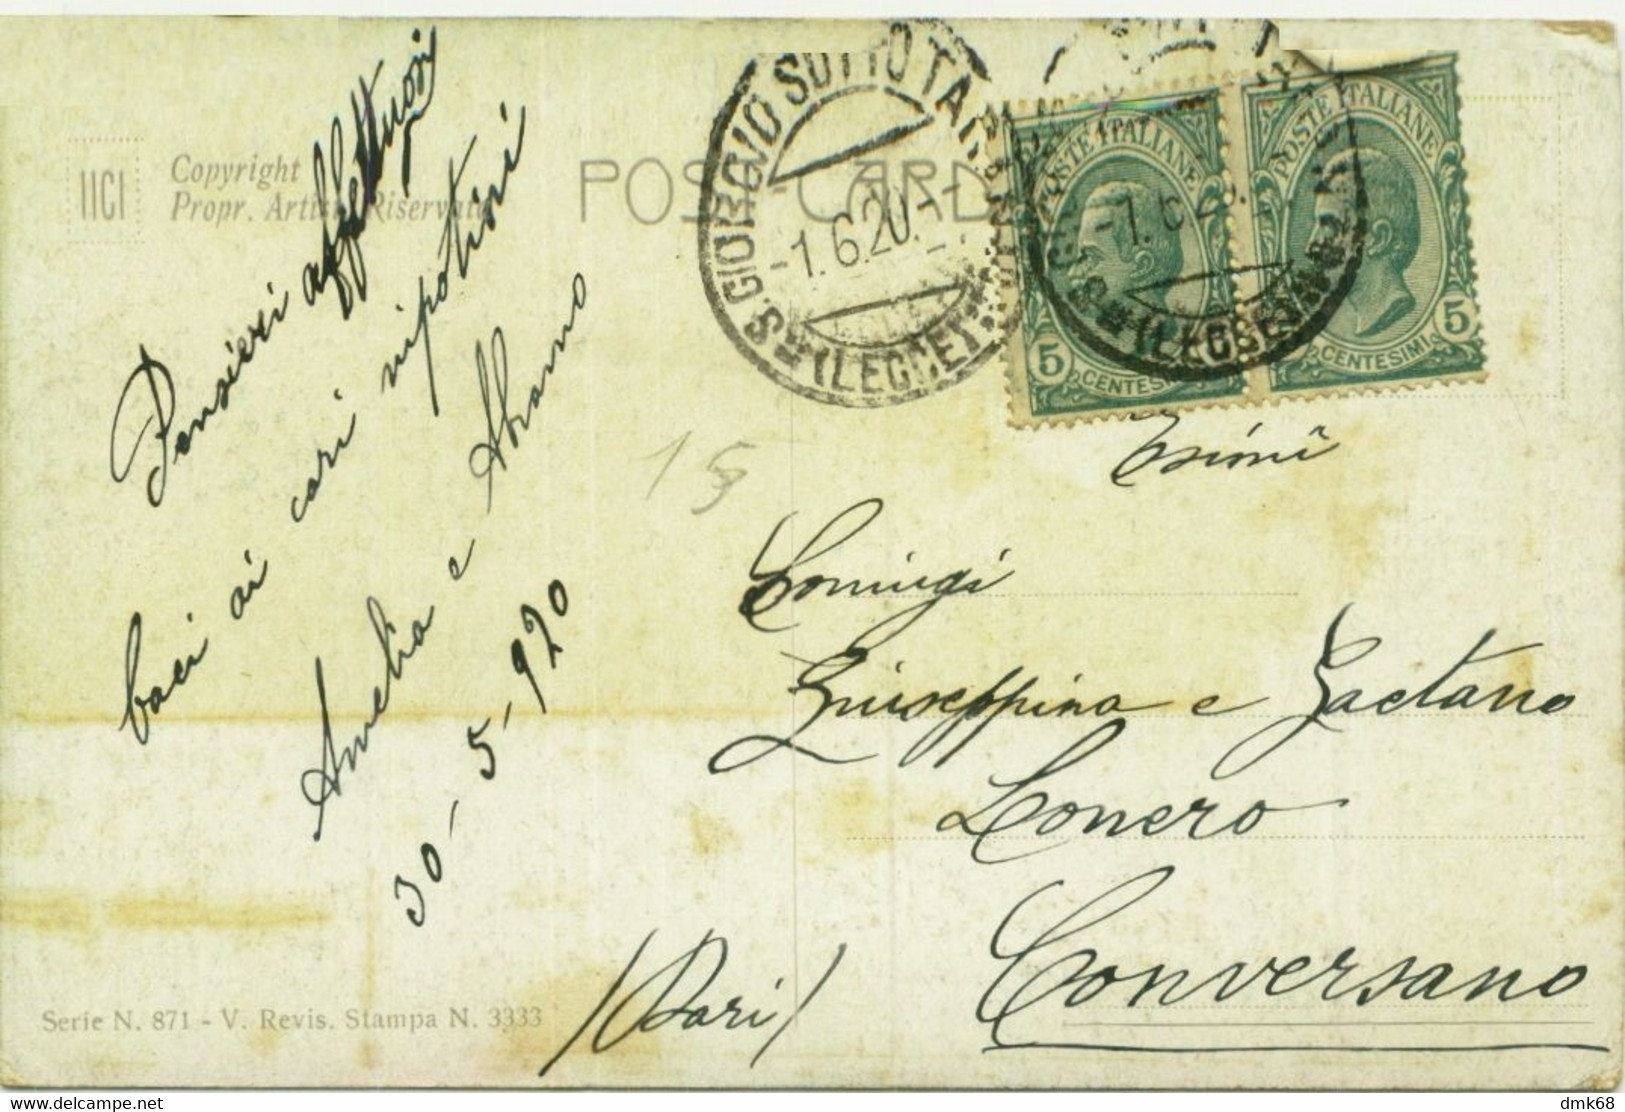 Pensieri affettuosi
baci ai cari nipotini
Amelia e Abramo
30-5-920
IICI
Copyright
Propr. Artist. Riservata
POST CARD
S. GIORGIO SOTTO TAR
-1.6.20.-
(LECCE)
POSTE ITALIANE
5 CENTESIMI
POSTE ITALIANE
CENTESIMI 5
-1.6.20.
(LECCE)
15
Coniugi
Giuseppina e Gaetano
Lonero
Conversano
(Bari)
Serie N. 871 - V. Revis. Stampa N. 3333
dmk68